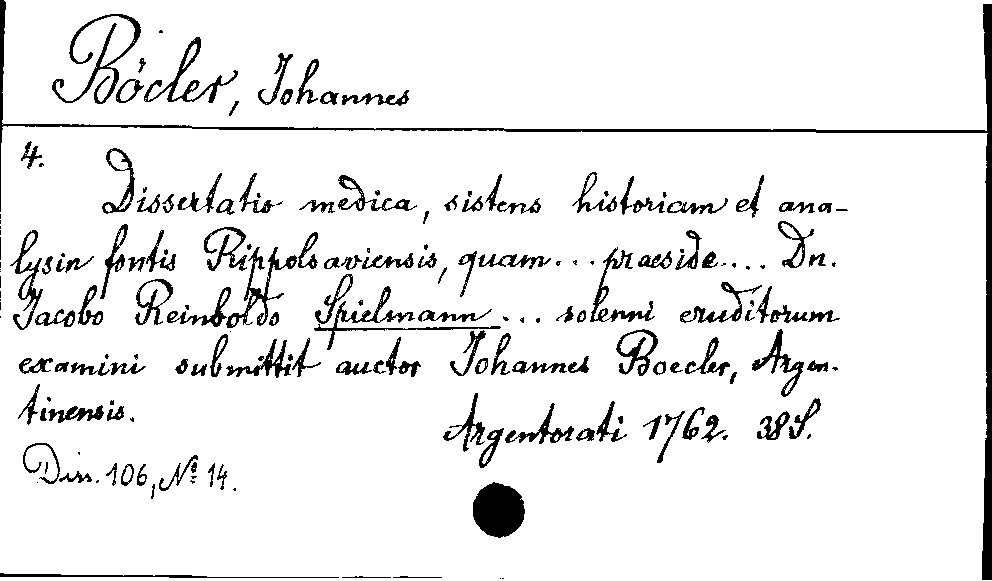 Böcler, Johannes
4.
Dissertatio medica, sistens historiam et ana-
lysin fontis Rippolsaviensis, quam... praeside.... Dn.
Jacobo Reinboldo Spielmann... solenni eruditorum
examini submittit auctor Johannes Boecler, Argen-
tinensis.
Argentorati 1762. 38 S.
Diss. 106, No 14.